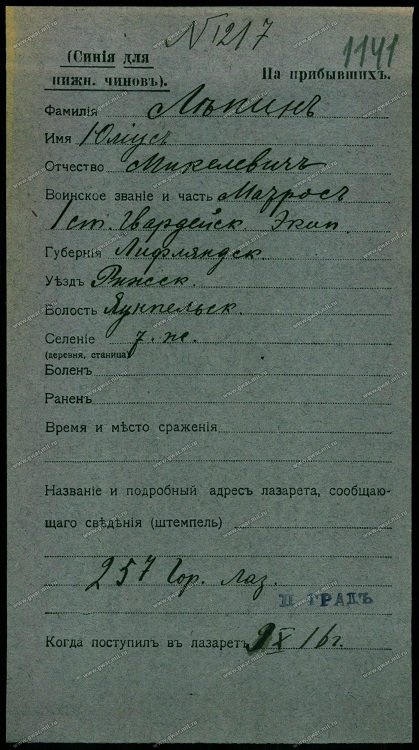 № 1217
1141
(Синія для
нижн. чиновъ).
На прибывшихъ.
Фамилія Лѣпинъ
Имя Юліусъ
Отчество Микелевичъ
Воинское званіе и часть Матросъ
1 ст. Гвардейск. Экип.
Губернія Лифляндск.
Уѣздъ Рижск.
Волость Яунпельск.
Селеніе
(деревня, станица)
Боленъ
Раненъ
Время и мѣсто сраженія
Названіе и подробный адресъ лазарета, сообщаю-
щаго свѣдѣнія (штемпель)
257 Гор. Лаз.
П ГРАДЪ
Когда поступилъ въ лазаретъ 9 X 16 г.
www.gwar.mil.ru